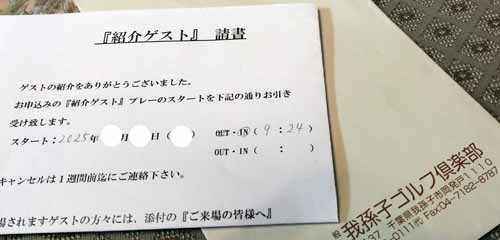 『紹介ゲスト』 請書
ゲストの紹介をありがとうございました。
お申込みの『紹介ゲスト』プレーのスタートを下記の通りお引き
受け致します。
スタート:2025年 月 日( ) OUT・IN( 9 : 24 )
OUT・IN( : )
キャンセルは1週間前迄にご連絡下さい。
場されますゲストの方々には、添付の『ご来場の皆様へ』
我孫子ゴルフ倶楽部
千葉県我孫子市岡発戸1110
Fax04-7182-8787